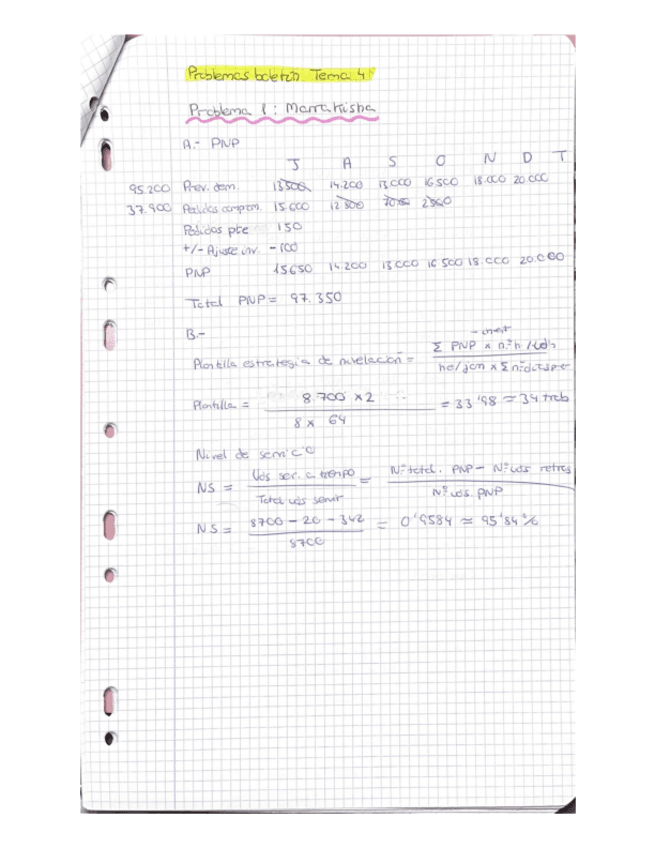 Problemas boletín Tema 4
Problema 1: Marrakisha
A.- PNP
J A S O N D T
95.200 Prev. dem. 13500 14.200 13.000 16.500 18.000 20.000
37.900 Pedidos comprom. 15.000 12.800 2800
Pedidos pte 150
+/- Ajuste inv. -100
PNP 15650 14.200 13.000 16.500 18.000 20.000
Total PNP = 97.350
B.-
Plantilla estrategia de nivelación = Σ PNP x nº h / uds
Plantilla = 8.700 x 2 / 8 x 64 = 33'98 ≃ 34 trab
Nivel de servicio
NS = Uds ser. a tiempo / Total uds servir = Nº total. PNP - Nº uds retras / Nº uds. PNP
NS = 8700 - 20 - 342 / 8700 = 0'9584 ≃ 95'84%